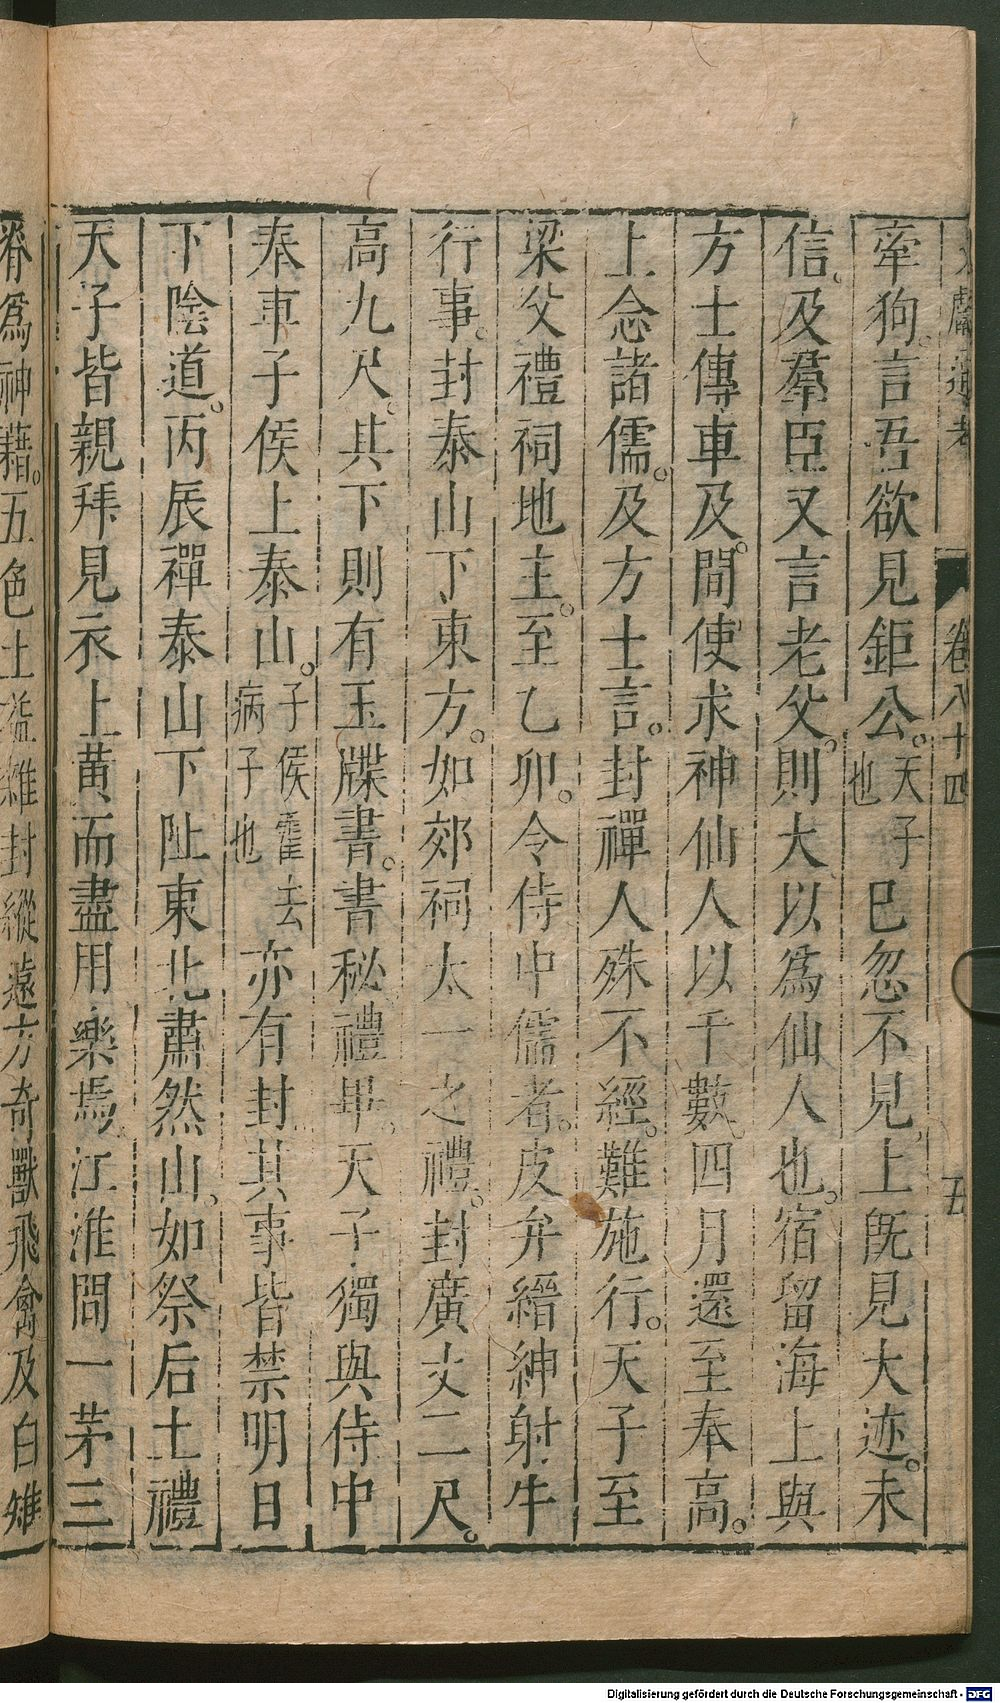 文獻通考 卷八十四 五
牽狗。言吾欲見鉅公。天子也已忽不見。上旣見大迹。未
信。及羣臣又言老父。則大以爲仙人也。宿留海上與
方士傳車及。間使求神仙人以千數。四月還至奉高。
上念諸儒。及方士言。封禪人殊不經。難施行。天子至
梁父禮祠地主。至乙卯。令侍中儒者。皮弁縉紳射牛
行事。封泰山下東方。如郊祠太一之禮。封廣丈二尺。
高九尺。其下則有玉牒書。書秘禮畢。天子獨與侍中
奉車子侯上泰山。子侯霍去病子也亦有封其事皆禁明日
下陰道。丙辰禪泰山下阯東北肅然山。如祭后土禮
天子皆親拜見衣上黃而盡用樂焉。江淮間一茅三
脊爲神藉。五色土益雜封縱遠方奇獸飛禽及白雉
Digitalisierung gefördert durch die Deutsche Forschungsgemeinschaft - DFG